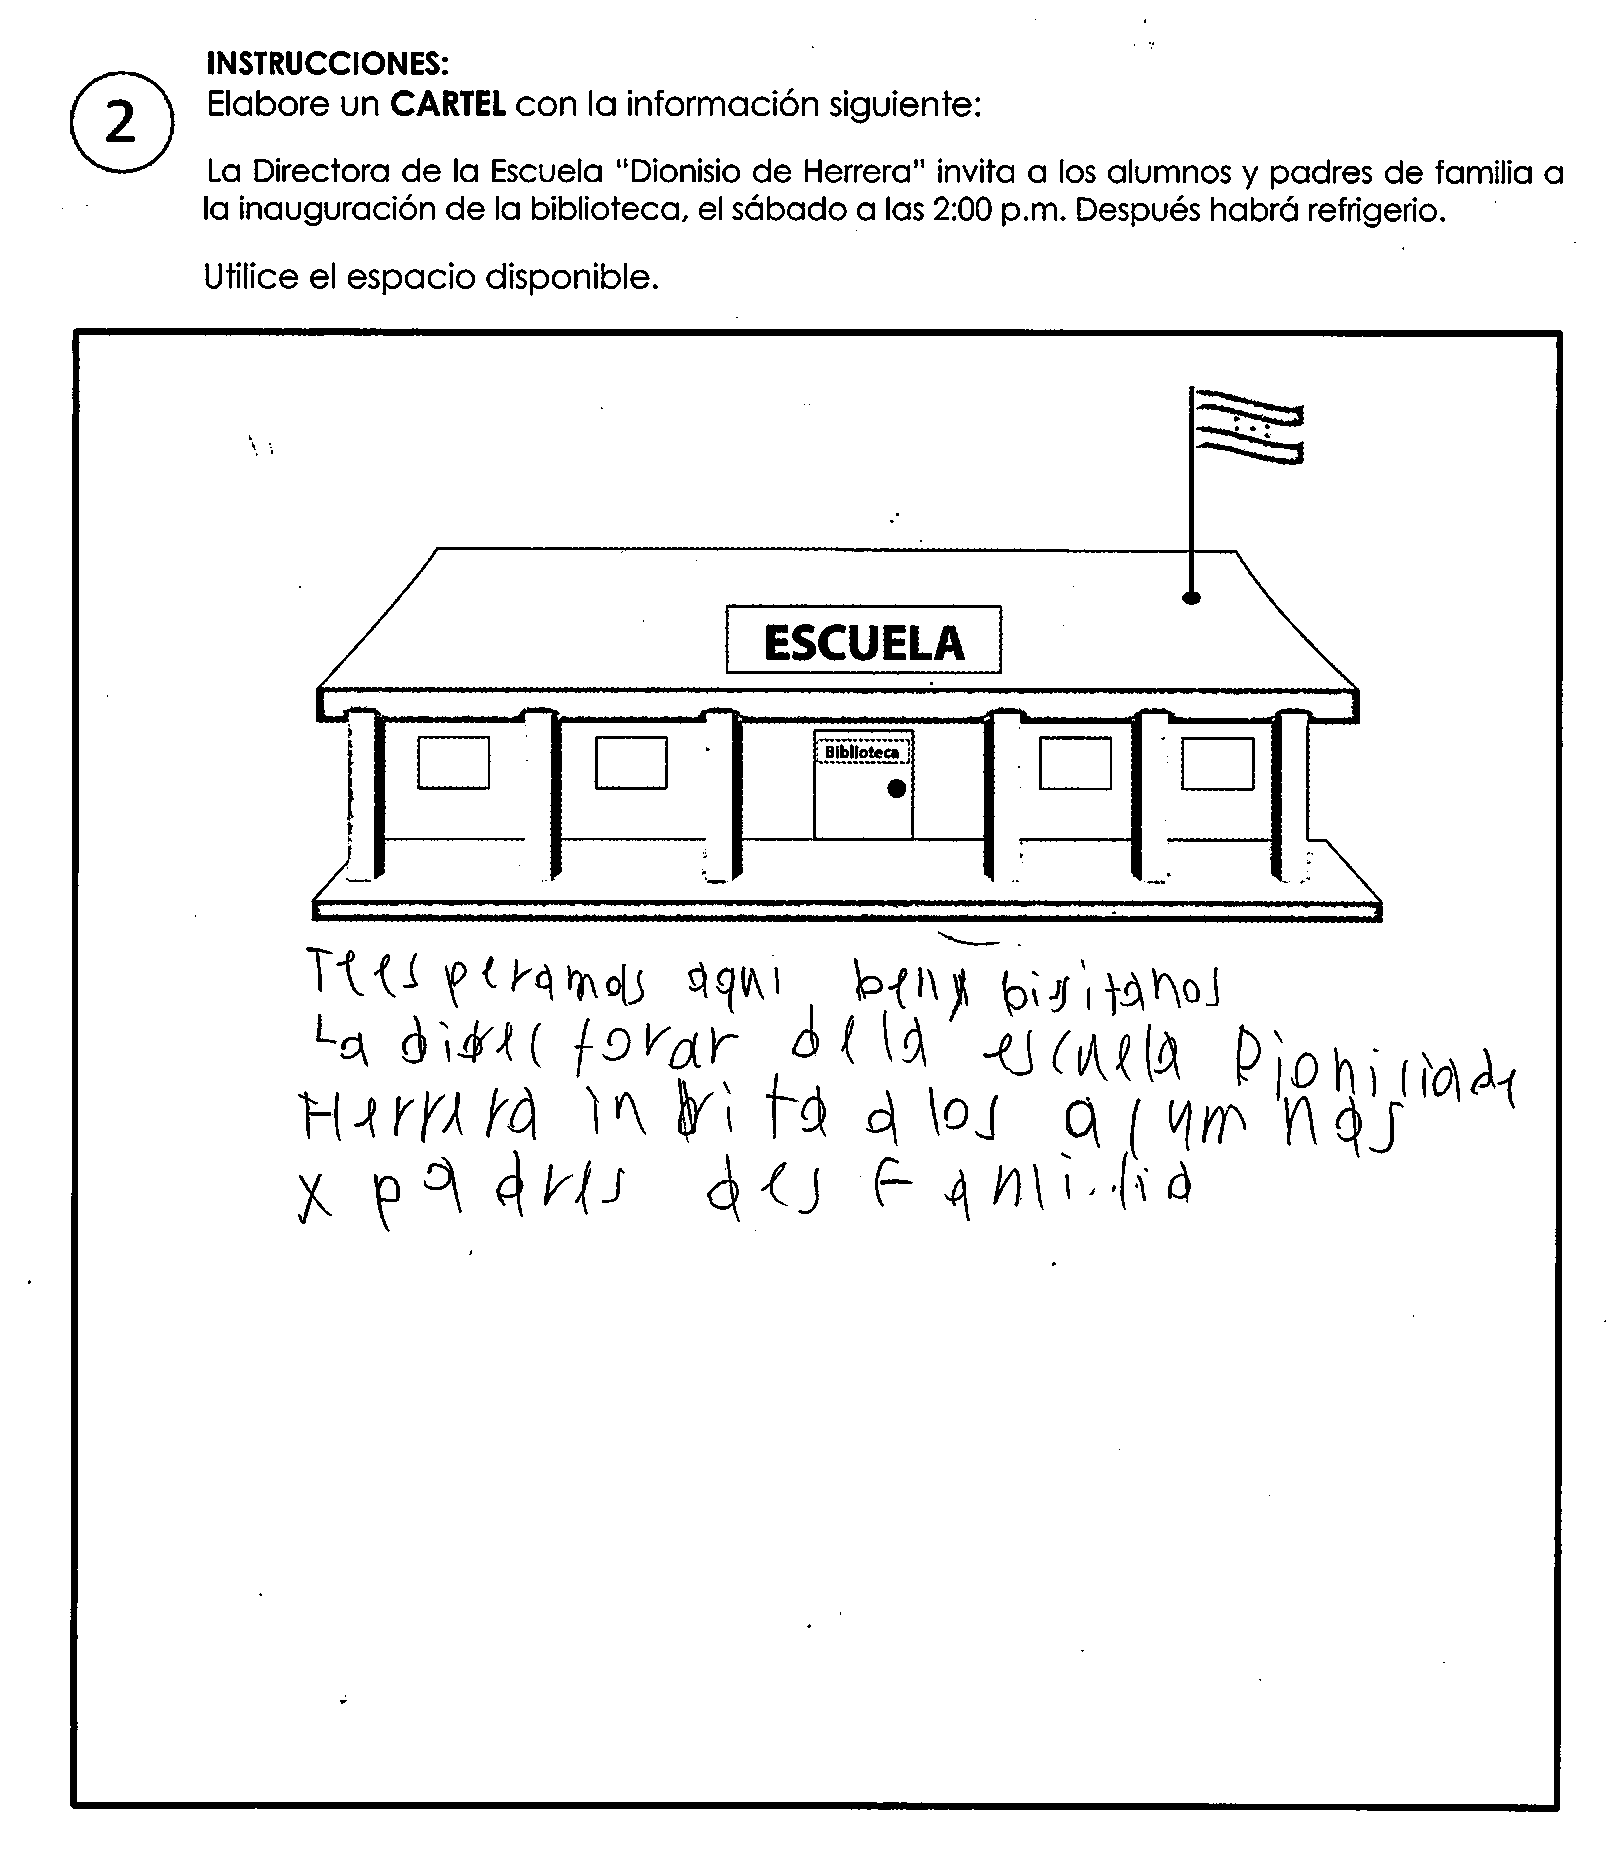 INSTRUCCIONES:
2
Elabore un CARTEL con la información siguiente:
La Directora de la Escuela "Dionisio de Herrera" invita a los alumnos y padres de familia a
la inauguración de la biblioteca, el sábado a las 2:00 p.m. Después habrá refrigerio.
Utilice el espacio disponible.
ESCUELA
Biblioteca
Tees peramos aqui beny bisitanos
La direc torar dela escuela Dioniciade
Herrera invita a los alumnos
x padres des Familia